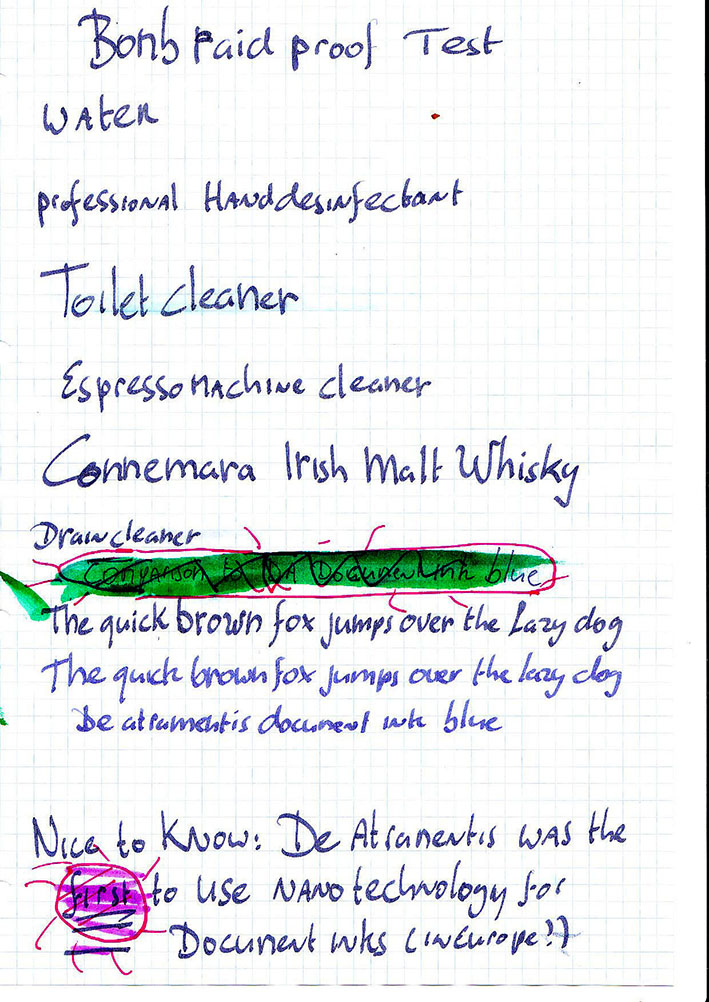 Bomb Raid proof Test
WATER
professional Handdesinfectant
Toilet cleaner
Espressomachine cleaner
Connemara Irish Malt Whisky
Drawcleaner
Comparison to DA Document ink blue
The quick brown fox jumps over the Lazy dog
The quick brown fox jumps over the lazy dog
De atramentis document ink blue
Nice to Know: De Atramentis was the
first to use NANOtechnology for
Document inks (in Europe!?)